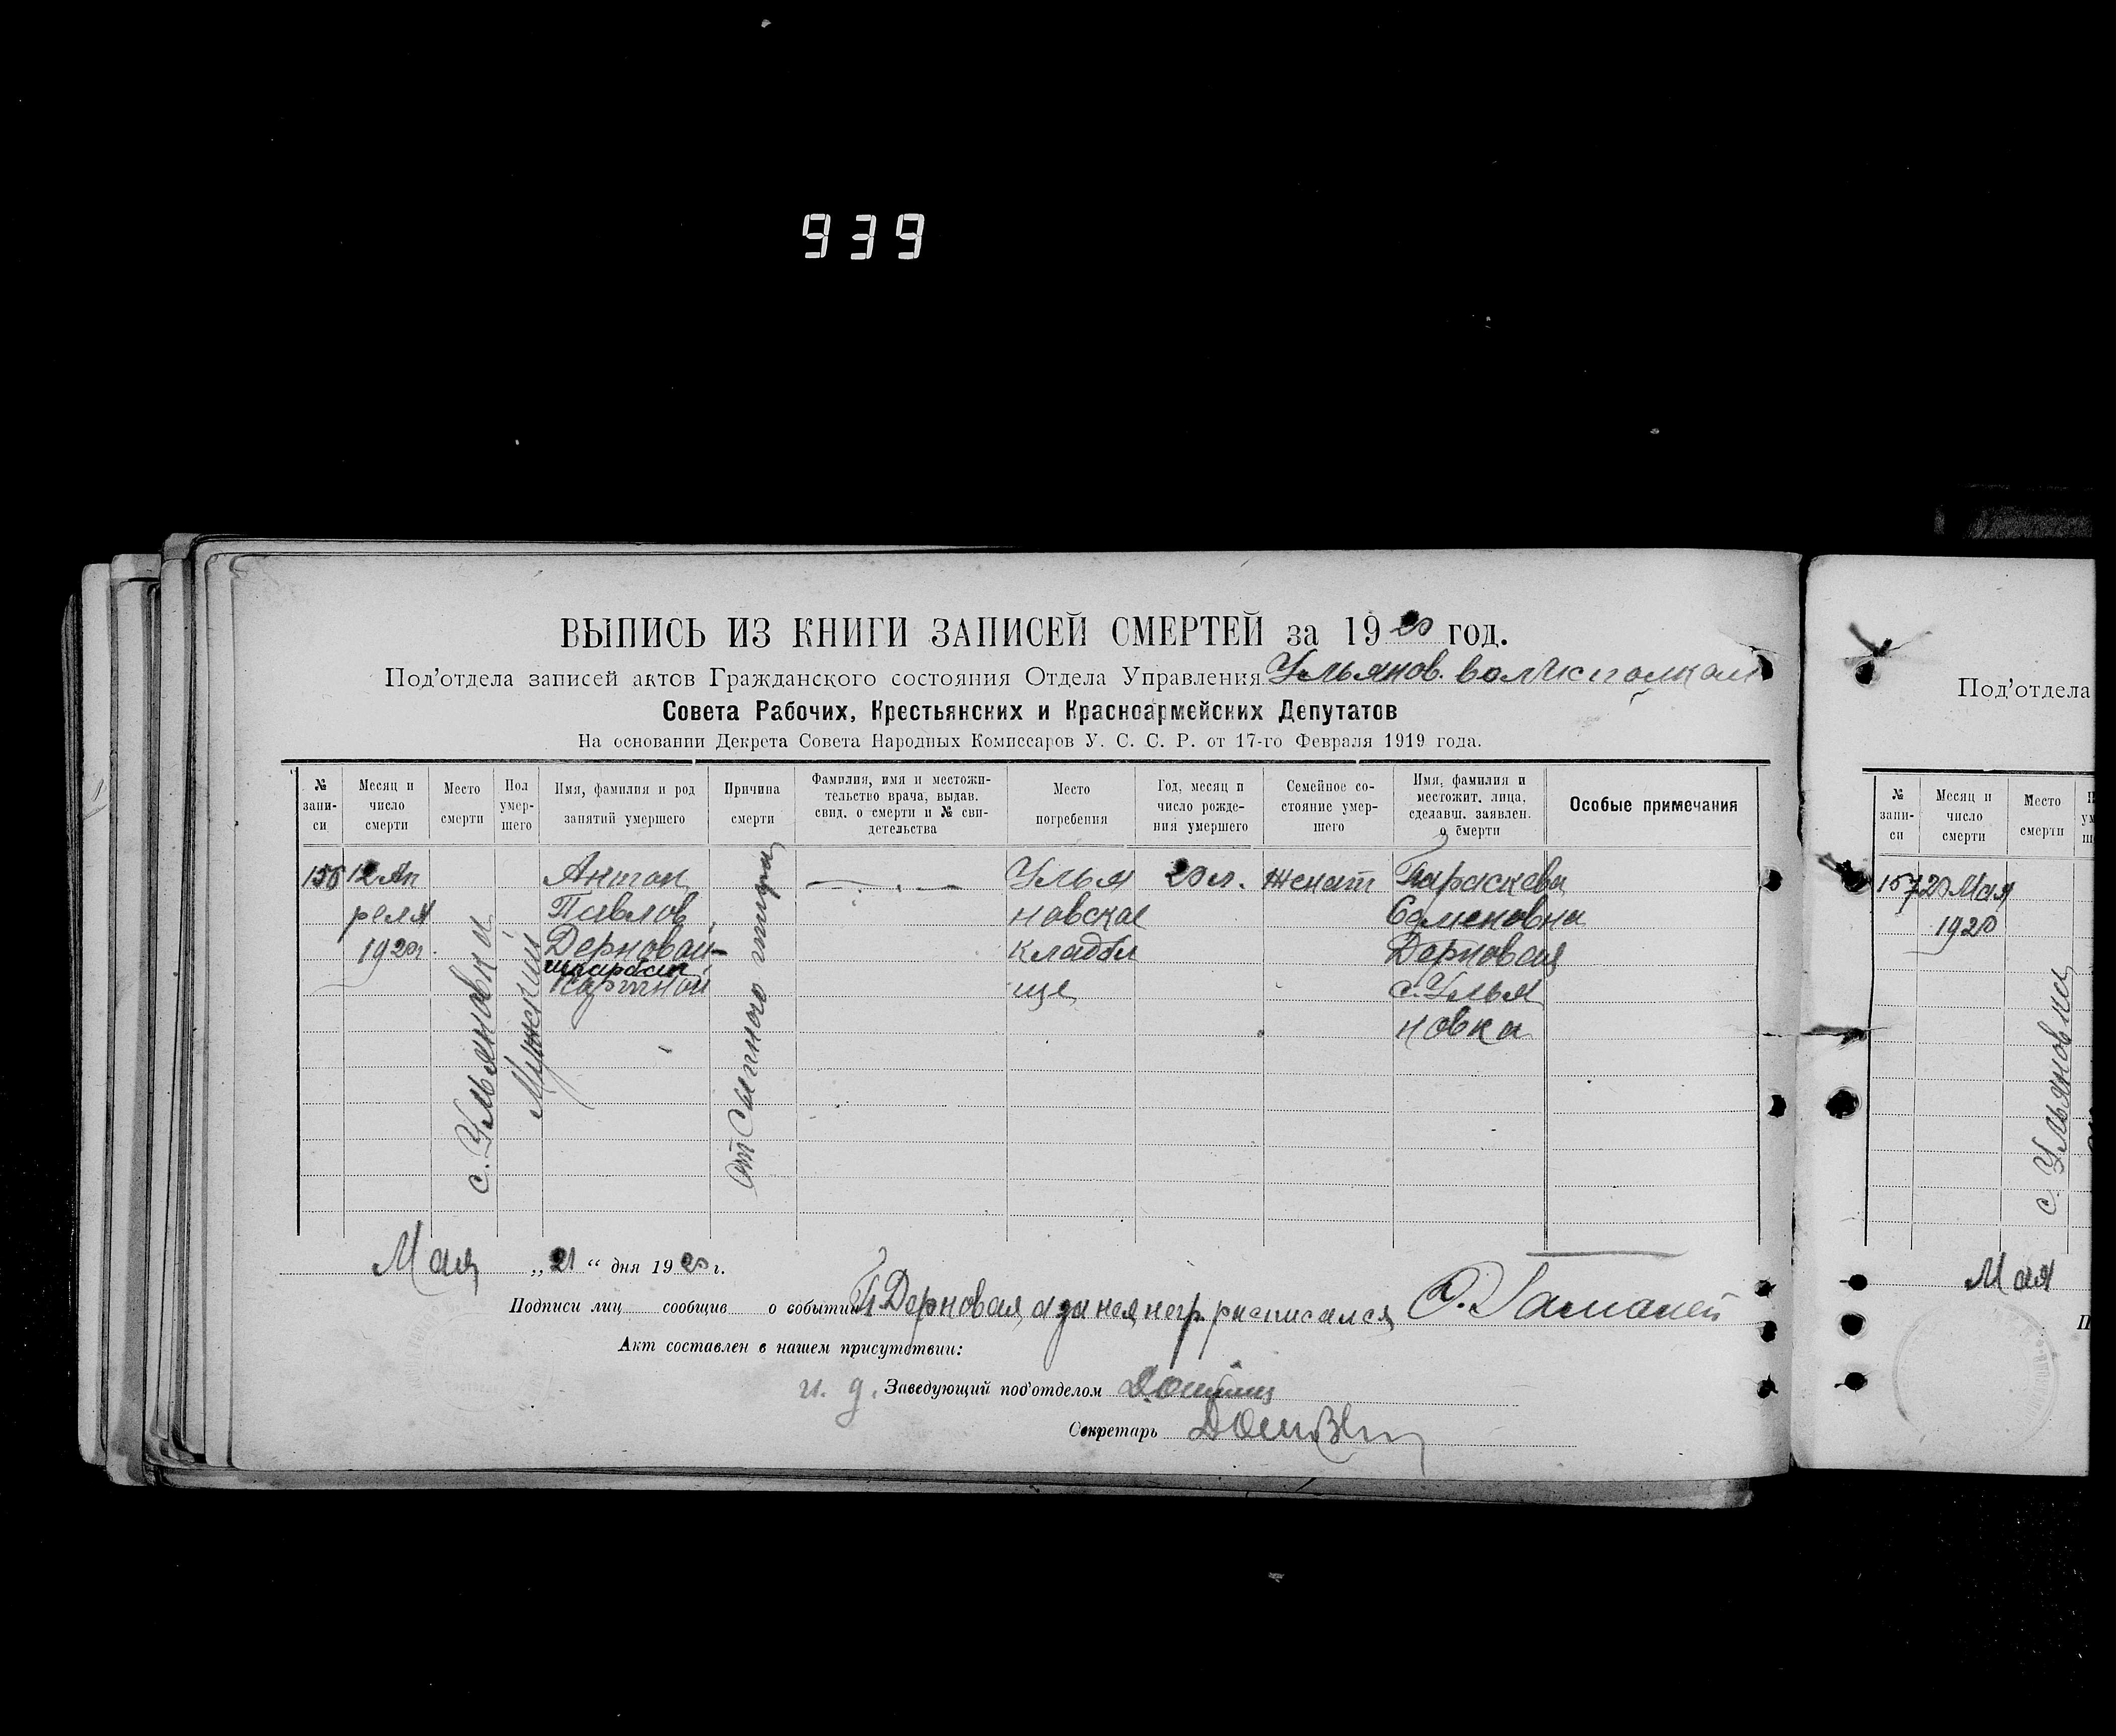 939
ВЫПИСЬ ИЗ КНИГИ ЗАПИСЕЙ СМЕРТЕЙ за 1920 год.
Под'отдела записей актов Гражданского состояния Отдела Управления Ульянов. волисполком
Совета Рабочих, Крестьянских и Красноармейских Депутатов
На основании Декрета Совета Народных Комиссаров У. С. С. Р. от 17-го Февраля 1919 года.
№ записи
Месяц и число смерти
Место смерти
Пол умершего
Имя, фамилия и род занятий умершего
Причина смерти
Фамилия, имя и местожительство врача, выдав. свид. о смерти и № свидетельства
Место погребения
Год, месяц и число рождения умершего
Семейное состояние умершего
Имя, фамилия и местожит. лица, сделавш. заявлен. о смерти
Особые примечания
156
12 Ап
реля
1920г.
с. Ульяновка
Мужский
Антон
Павлов
Дерновой
От Сыпного тифа
Улья
новское
кладби
ще
20 л.
женат
Параскева
Семеновна
Дерновая
с. Улья
новка
Мая „21“ дня 1920 г.
Подписи лиц сообщив о событии П Дерновая, а за нея негр. расписался
Акт составлен в нашем присутствии:
и. д. Заведующий под'отделом
Секретарь
Под'отдела
№ записи
Месяц и число смерти
Место смерти
157
20 Мая
1920
с. Ульяновка
Мая